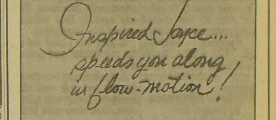 Inspired Joyce...
speeds you along
in flow-motion!